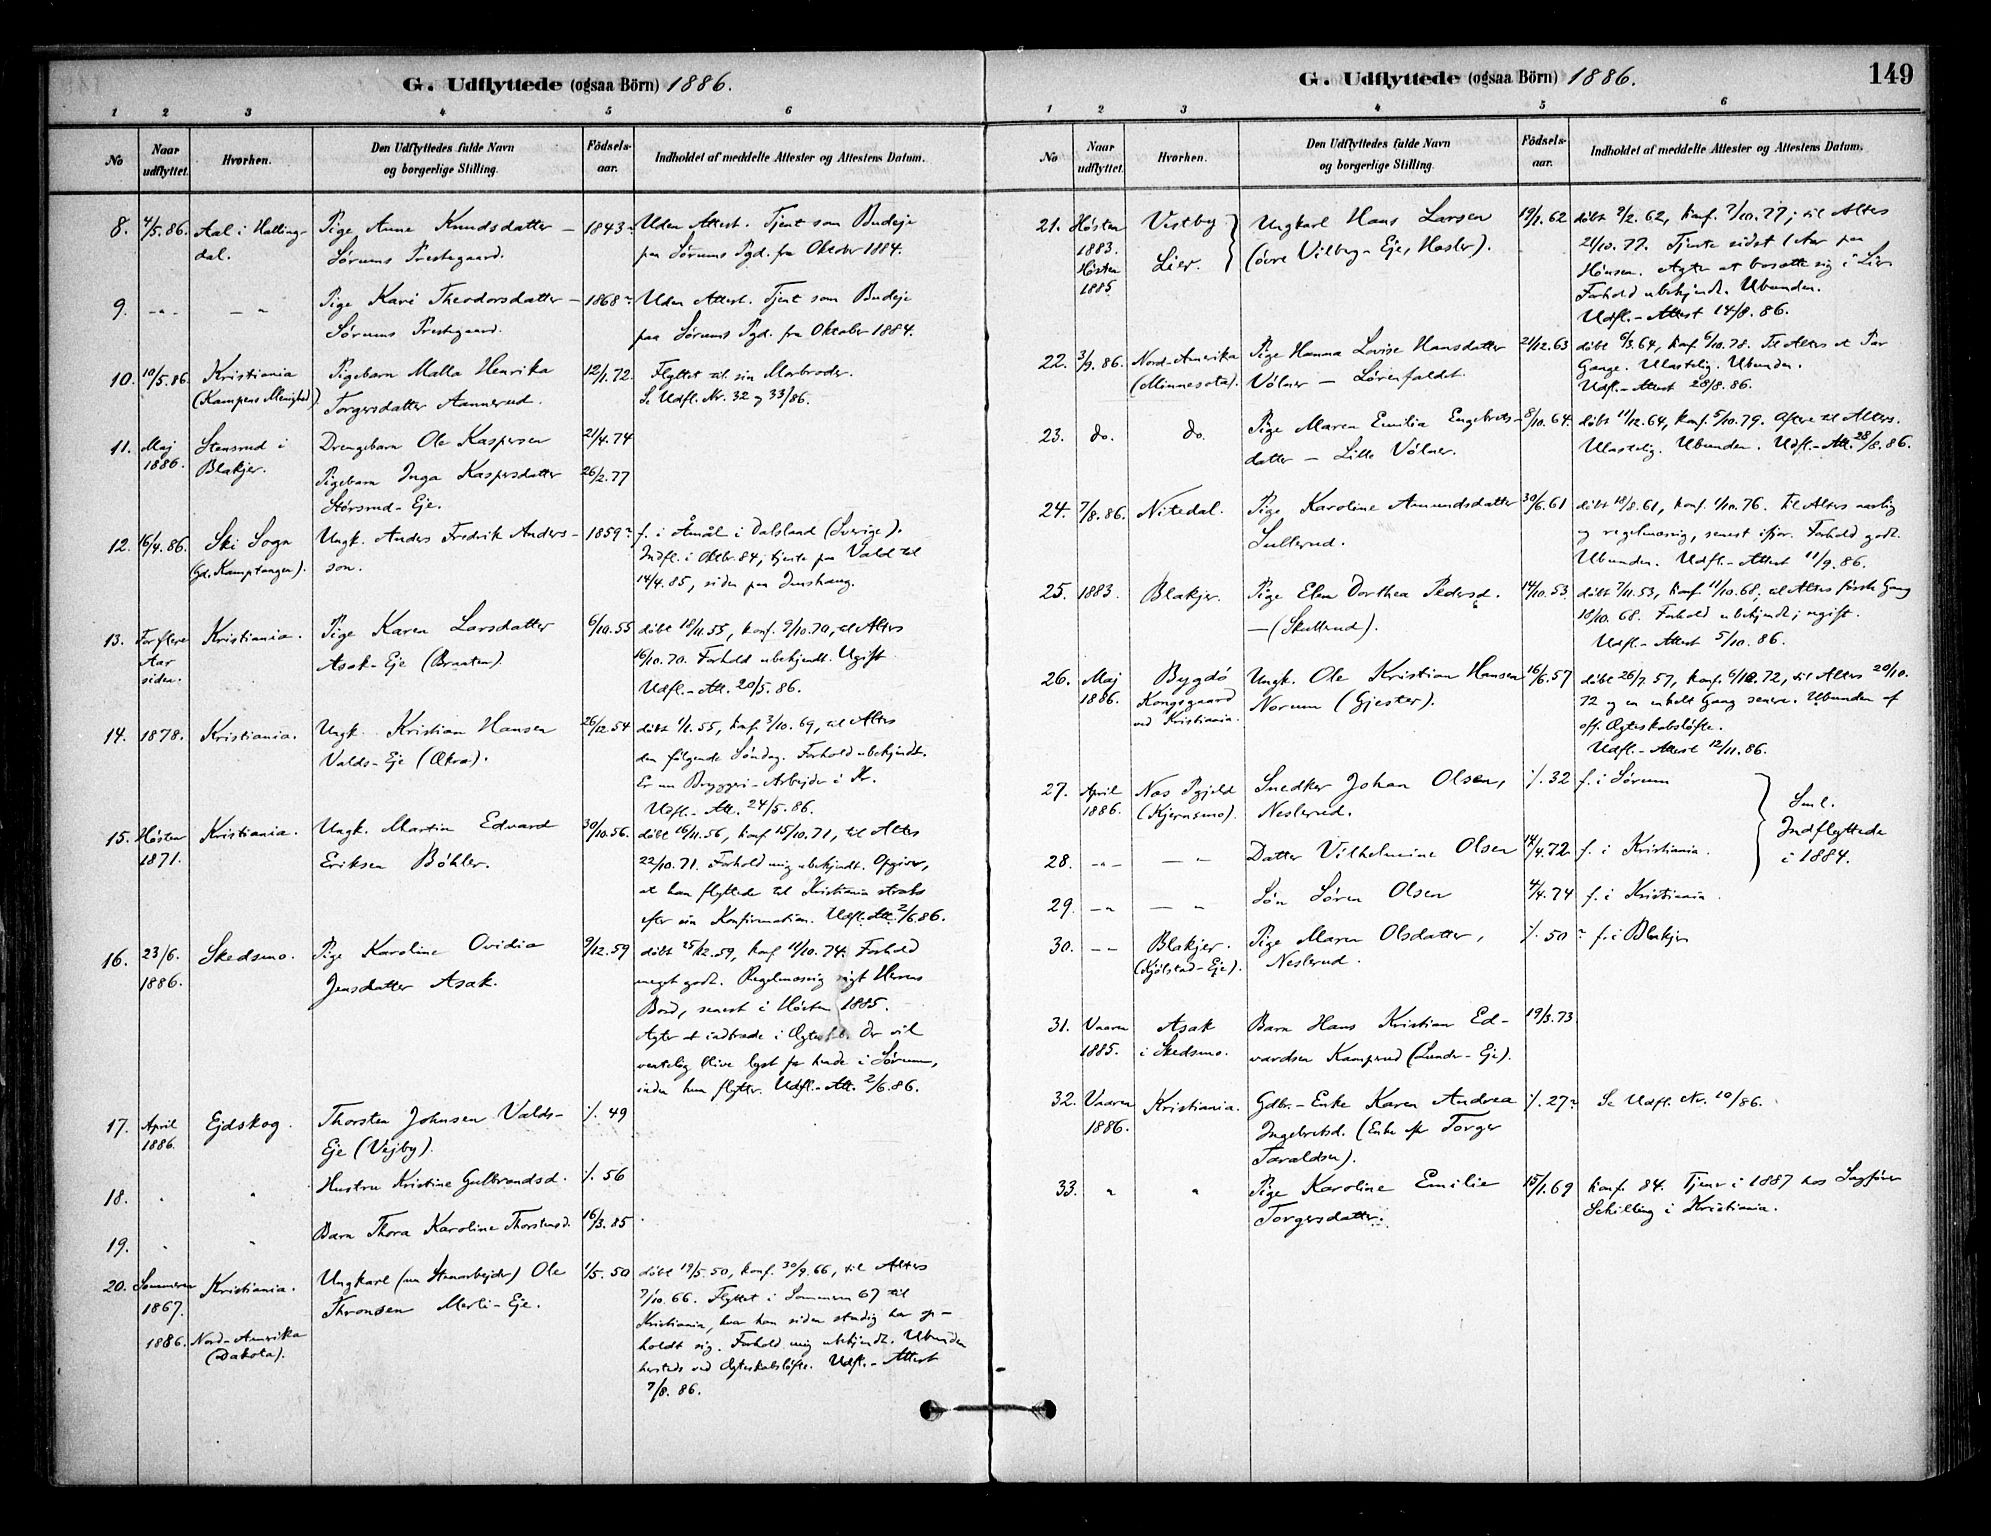 G. Udflyttede (ogsaa Börn) 1886.
1 2 3 4 5 6
No
Naar udflyttet.
Hvorhen.
Den Udflyttedes fulde Navn og borgerlige Stilling.
Födsels-aar.
Indholdet af meddelte Attester og Attestens Datum.
8. 4/5.86. Aal i Halling- Pige Anne Knudsdatter – 1843~ Uden Attest. Tjent som Budeje
dal. Sørums Prestegaard. paa Sørums Pgd. fra Oktober 1884.
9. –„– –„ Pige Kari Theodorsdatter – 1868~ Uden Attest. Tjent som Budeje
Sørums Prestegaard. paa Sørums Pgd. fra Oktober 1884.
10. 10/5.86. Kristiania Pigebarn Malla Henrika 12/1.72. Flyttet til sin Morbroder.
(Kampens Menighed). Torgersdatter Aannerud. Se Udfl. Nr. 32 og 33/86.
11. Maj Stensrud i Drengebarn Ole Kaspersen 21/4.74
1886. Blakjer. Pigebarn Inga Kaspersdatter 26/2.77
Størsrud-Eje.
12. 16/4.86. Ski Sogn Ungk. Anders Fredrik Anders- 1859~ f. i Åmål i Dalsland (Sverige).
(Gd. Kamptangen). son. Indfl. i Oktbr. 84, tjente paa Vald til
14/4.85, siden paa
13. For flere Kristiania. Pige Karen Larsdatter 6/10.55 døbt 18/11.55, konf. 9/10.70, til Alters
Aar Asak-Eje (Braaten). 16/10.70. Forhold ubekjendt. Ugift.
siden. Udfl.-Att. 20/5.86.
14. 1878. Kristiania. Ungk. Kristian Hansen 26/12.54 døbt 1/1.55, konf. 3/10.69, til Alters
Valds-Eje (Økra). den følgende Søndag. Forhold ubekjendt.
Er nu Bryggeri-Arbejder i K.
Udfl.-Att. 24/5.86.
15. Høsten Kristiania. Ungk. Martin Edvard 30/10.56. døbt 16/11.56, konf. 15/10.71, til Alters
1871. Eriksen Bøhler. 22/10.71. Forhold mig ubekjendt. Opgiver,
at han flyttede til Kristiania straks
efter sin Konfirmation. Udfl.-Att. 2/6.86.
16. 23/6. Skedsmo. Pige Karoline Ovidia 9/12.59 døbt 25/12.59, konf. 11/10.74. Forhold
1886. Jensdatter Asak. meget godt. Regelmæssig søgt Herrens
Bord, senest i Høsten 1885.
Agter at indtræde i Ægtesk. Der vil
ventelig blive lyst for hende i Sørum,
inden hun flytter. Udfl.-Att. 2/6.86.
17. April Ejdskog. Thorsten Johnsen Valds- 1/. 49
1886. Eje (Vejby).
18. „ „ Hustru Kristine Gulbrandsd. 1/. 56
19. „ „ Barn Thora Karoline Thorstensd. 16/3.85
20. Sommeren Kristiania. Ungkarl (nu Stenarbejder) Ole 1/5.50 døbt 19/5.50, konf. 30/9.66, til Alters
1867. Thronsen Merli-Eje. 7/10.66. Flyttet i Sommeren 67 til
1886. Nord-Amerika Kristiania, hvor han siden stadig har op-
(Dakota). holdt sig. Forhold mig ubekjendt. Ubunden
hersteds ved Ægteskabsløfte. Udfl.-Attest
7/8.86.
G. Udflyttede (ogsaa Börn) 1886.
149
1 2 3 4 5 6
No
Naar udflyttet.
Hvorhen.
Den Udflyttedes fulde Navn og borgerlige Stilling.
Födsels-aar.
Indholdet af meddelte Attester og Attestens Datum.
21. Høsten Vestby Ungkarl Hans Larsen 19/1.62 døbt 9/2.62, konf. 7/10.77; til Alters
1883. (øvre Vilberg-Eje, Hasler). 21/10.77. Tjente sidst 1 Aar paa
Høsten Lier. Hønsen. Agter at bosætte sig i Lier.
1885 Forhold ubekjendt. Ubunden.
Udfl.-Attest 14/8.86.
22. 3/9.86. Nord-Amerika Pige Hanna Lovise Hansdatter 21/12.63 døbt 6/3.64, konf. 6/10.78. Til Alters et Par
(Minnesota). Vølner – Lørenfaldet. Gange. Ulastelig. Ubunden.
Udfl.-Attest 28/8.86.
23. do. do. Pige Maren Emilia Engebrets- 8/10.64. døbt 11/12.64, konf. 5/10.79. Oftere til Alters.
datter – Lille Vølner. Ulastelig. Ubunden. Udfl.-Att. 28/8.86.
24. 7/8.86. Nitedal. Pige Karoline Amundsdatter 30/6.61 døbt 18/8.61, konf. 1/10.76. Til Alters aarlig
Sullerud. og regelmæssig, senest ifjor. Forhold godt.
Ubunden. Udfl.-Attest 11/9.86.
25. 1883. Blakjer. Pige Elen Dorthea Pedersd. 14/10.53. døbt 7/11.53, konf. 11/10.68, til Alters første Gang
–(Skullerud). 18/10.68. Forhold ubekjendt; ugift.
Udfl.-Attest 5/10.86.
26. Maj Bygdø Ungk. Ole Kristian Hansen 16/6.57 døbt 26/7.57, konf. 6/10.72, til Alters 20/10.
1886. Kongsgaard Norum (Gjester). 72 og en enkelt Gang senere. Ubunden af
ved Kristiania. off. Ægteskabsløfte.
Udfl.-Attest 12/11.86.
27. April Nes Pgjeld Snedker Johan Olsen, 1/. 32 f. i Sørum
1886. (Kjernsmo). Neslerud.
Sml.
Indflyttede
i 1884.
28. –„– –„ Datter Vilhelmine Olsen 14/4.72 f. i Kristiania.
29. –„ –„ Søn Søren Olsen 4/4.74 f. i Kristiania.
30. –„– Blakjer. Pige Maren Olsdatter, 1/. 50~ f. i Blakjer
(Kjølstad-Eje). Neslerud.
31. Vaaren Asak Barn Hans Kristian Ed- 19/3.73
1885. i Skedsmo. vardsen Kamperud (Lunder-Eje).
32. Vaaren Kristiania. Gdbr.-Enke Karen Andrea 1/. 27~ Se Udfl. Nr. 10/86.
1886. Ingebretsd. (Enke efter Torger
Taraldsen).
33. „ „ Pige Karoline Emilie 15/1.69 konf. 84. Tjener i 1887 hos Sagfører
Torgersdatter. Schilling i Kristiania.